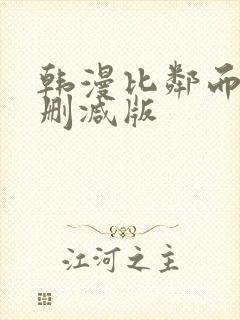 韩漫比邻而
删减版
江河之主